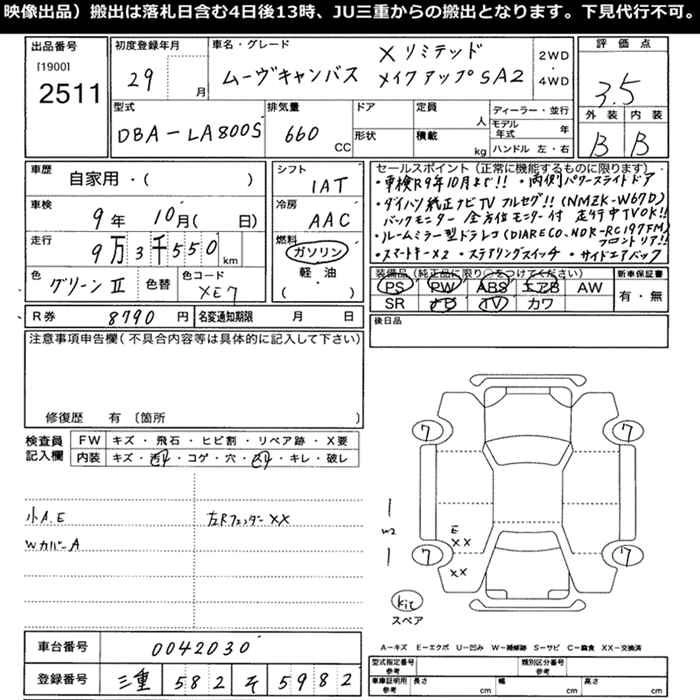 映像出品）搬出は落札日含む4日後13時、JU三重からの搬出となります。下見代行不可。
出品番号
[1900]
2511
初度登録年月
29 月
車名・グレード
ムーヴキャンバス
X リミテッド
メイクアップ SA2
2WD
・
4WD
評価点
3.5
外装 内装
B B
型式
DBA-LA800S
排気量
660 CC
ドア
形状
定員 人
積載 kg
ディーラー・並行
モデル年式 年
ハンドル 左・右
車歴
自家用・( )
車検
9年 10月( 日)
走行
9万3千550km
色
グリーンⅡ
色替
色コード
XE7
シフト
IAT
冷房
AAC
燃料
ガソリン
軽油
( )
セールスポイント（正常に機能するものに限ります）
・車検R9年10月まで!! ・両側パワースライドドア
・ダイハツ純正ナビTV フルセグ!!(NMZK-W67D)
バックモニター 全方位モニター付 走行中TVOK!!
・ルームミラー型ドラレコ(DIARECO.NDR-RC197FM)
フロントリア!!
・スマートキー×2 ・ステアリングスイッチ ・サイドエアバッグ
装備品（純正品に限り○をつけてください）
PS PW ABS エアB AW
SR ナビ TV カワ
新車保証書
有・無
後日品
R券 8790円
名変通知期限 月 日
注意事項申告欄（不具合内容等は具体的に記入して下さい）
修復歴 有 〔箇所 〕
検査員
記入欄
FW キズ・飛石・ヒビ割・リペア跡・X要
内装 キズ・汚れ・コゲ・穴・スレ・キレ・破レ
小A.E
Wカバー A
左Rフェンダー XX
7 7
W2
E
XX
XX
7 7
kit
スペア
A－キズ E－エクボ U－凹み W－補修跡 S－サビ C－腐食 XX－交換済
車台番号 0042030
登録番号 三重 582 そ 5982
型式指定番号
参考
類別区分番号
参考
車庫証明用
参考
長さ cm
幅 cm
高さ cm